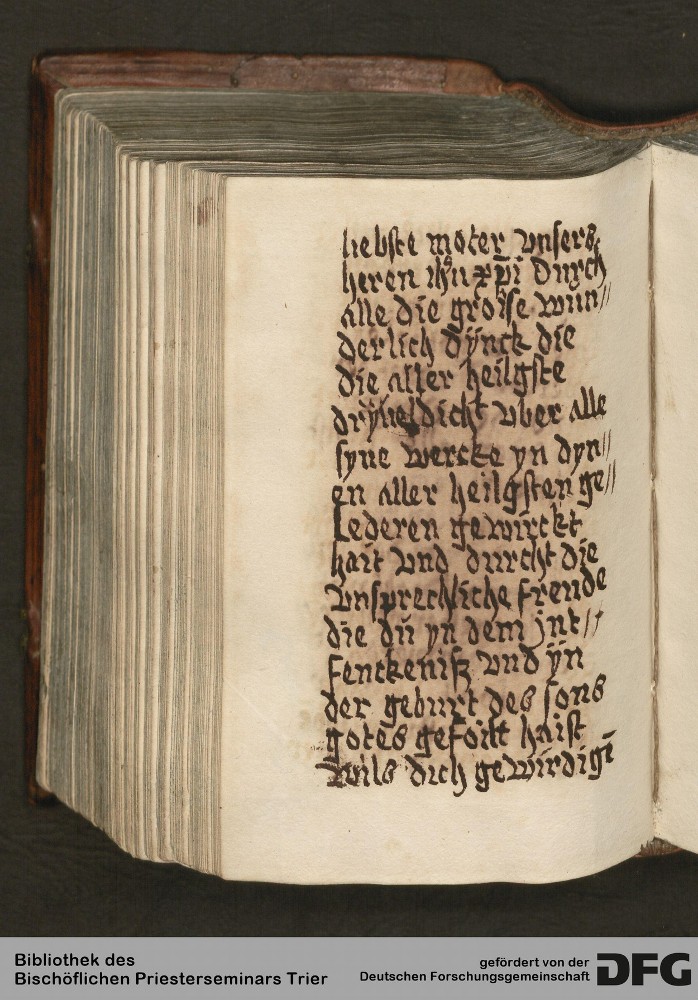 liebste moͤter vnsers
heren ihū xp̄i durch
alle die groisse wun//
derlich dÿnck die
die aller heilgste
drÿueldicht vber alle
syne wercke yn dyn//
en aller heilgsten ge//
lederen gewirckt
hait vnd durcht die
vnsprechliche freude
die dü yn dem int//
fenckeniß vnd ÿn
der geburt des sons
gotes gefoilt haist
wils dich gewirdigē
Bibliothek des
Bischöflichen Priesterseminars Trier
gefördert von der
Deutschen Forschungsgemeinschaft
DFG